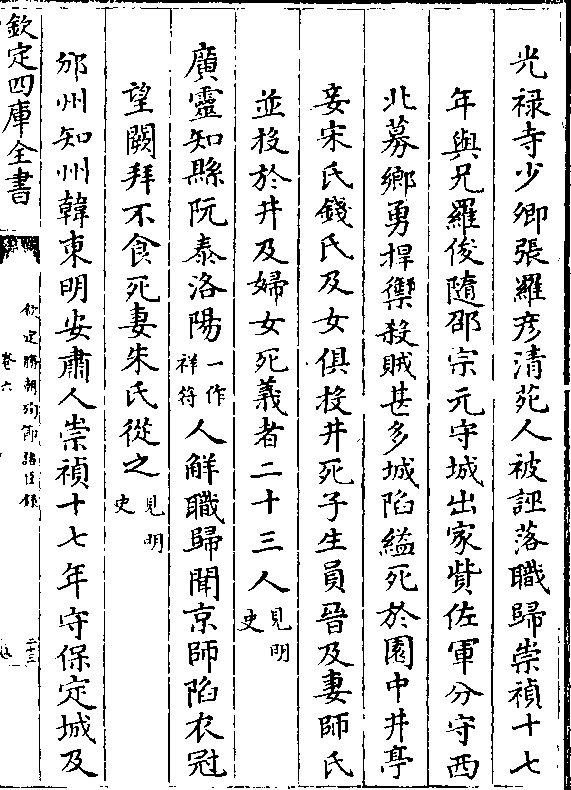 光祿寺少卿張羅彥清苑人被誣落職歸崇禎十七
年與兄羅俊隨邵宗元守城出家貲佐軍分守西
北募鄉勇捍禦殺賊甚多城陷縊死於園中井亭
妾宋氏錢氏及女俱投井死子生員晉及妻師氏
並投於井及婦女死義者二十三人見明史
廣靈知縣阮泰洛陽一作祥符人解職歸聞京師陷衣冠
望闕拜不食死妻朱氏從之見明史
邠州知州韓東明安肅人崇禎十七年守保定城及
欽定四庫全書
欽定勝朝殉節諸臣錄
卷六
二十三